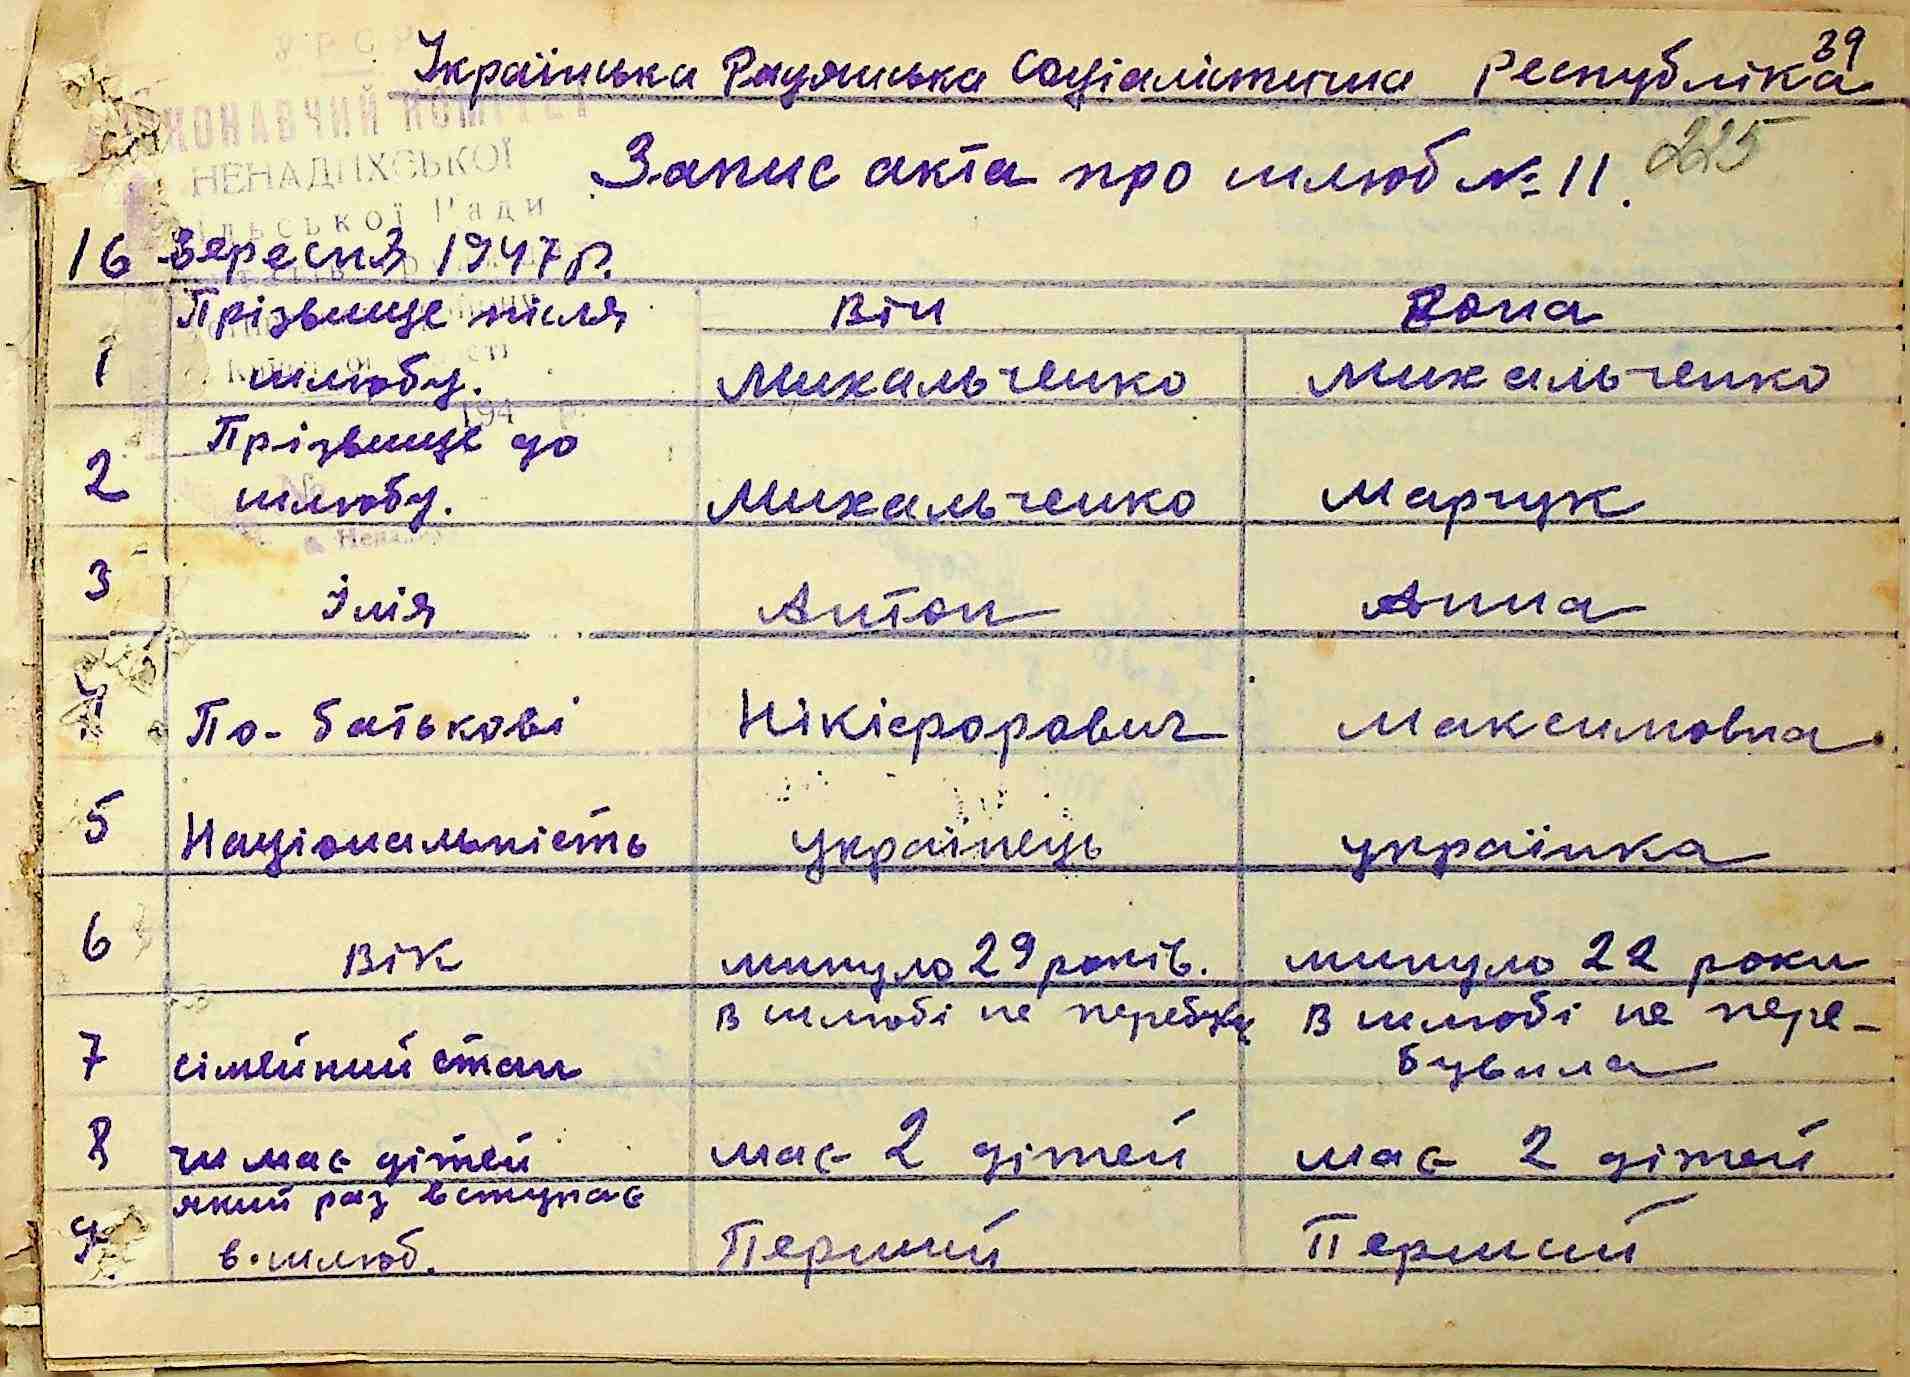 39
Українська Радянська Соціалістична Республіка
УРСР
ВИКОНАВЧИЙ КОМІТЕТ
НЕНАДИХСЬКОЇ
Сільської Ради
Запис акта про шлюб № 11.
225
16 вересня 1947 р.
Прізвище після Він Вона
1 шлюбу. Михальченко Михальченко
194 р.
Прізвище до
2 шлюбу. Михальченко Марчук
3 Імія Антон Анна
4 По-батькові Нікіфорович Максимовна
5 Національність Українець українка
6 Вік минуло 29 років. минуло 22 роки
В шлюбі не перебув В шлюбі не пере-
7 сімейний стан бувала
8 чи має дітей має 2 дітей має 2 дітей
який раз вступає
9 в шлюб. Перший Перший